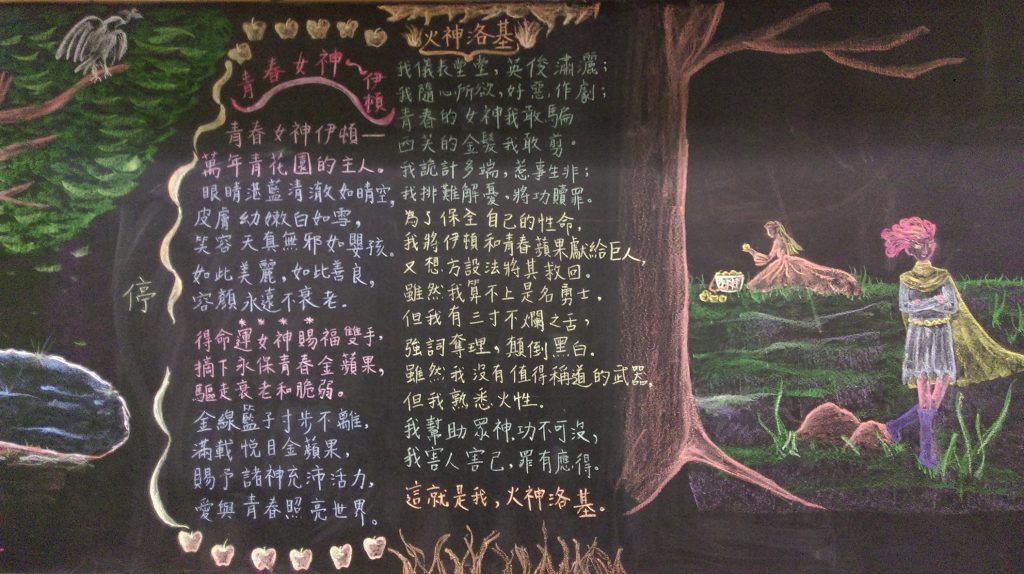 青春女神
伊頓
青春女神伊頓—
萬年青花園的主人。
眼睛湛藍清澈如晴空,
皮膚幼嫩白如雪,
笑容天真無邪如嬰孩。
如此美麗,如此善良,
容顏永遠不衰老.
得命運女神賜福雙手,
摘下永保青春金蘋果,
驅走衰老和脆弱。
金線籃子寸步不離,
滿載悅目金蘋果,
賜予諸神充沛活力,
愛與青春照亮世界。
停
火神洛基
我儀表堂堂,英俊瀟灑;
我隨心所欲,好惡作劇;
青春的女神我敢騙
西芙的金髮我敢剪。
我詭計多端,惹事生非;
我排難解憂,將功贖罪。
為了保全自己的性命.
我將伊頓和青春蘋果獻給巨人,
又想方設法將其救回。
雖然我算不上是名勇士,
但我有三寸不爛之舌,
強詞奪理,顛倒黑白.
雖然我沒有值得稱道的武器,
但我熟悉火性.
我幫助眾神.功不可沒,
我害人害己,罪有應得。
這就是我,火神洛基。